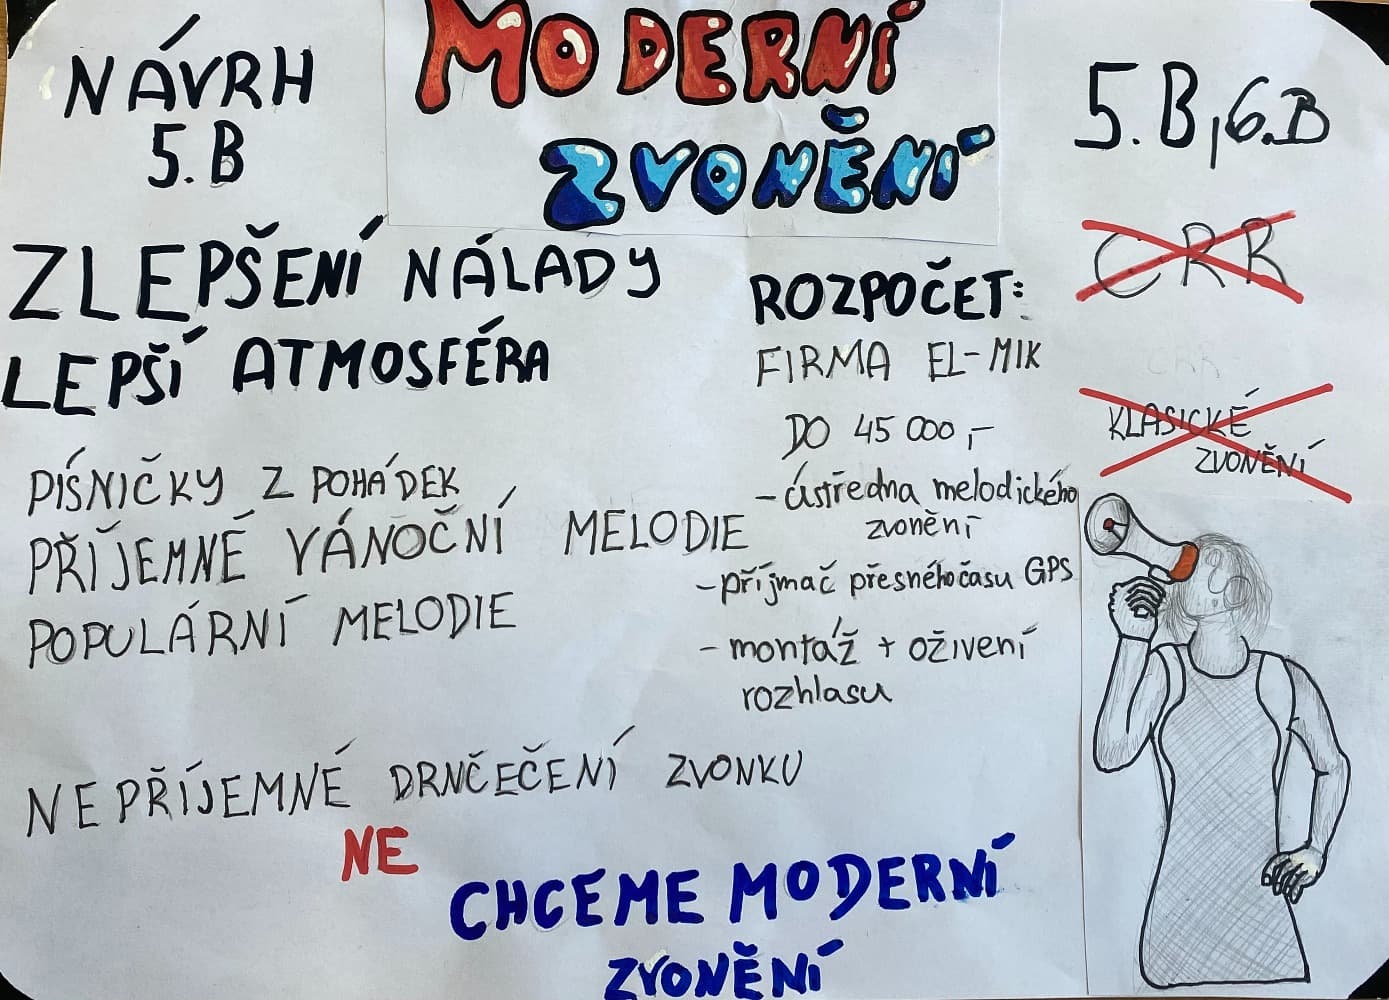 NÁVRH
5.B
MODERNÍ
ZVONĚNÍ
5.B, 6.B
ZLEPŠENÍ NÁLADY
LEPŠÍ ATMOSFÉRA
PÍSNIČKY Z POHÁDEK
PŘÍJEMNÉ VÁNOČNÍ MELODIE
POPULÁRNÍ MELODIE
ROZPOČET:
FIRMA EL-MIK
DO 45 000,-
- ústředna melodického
zvonění
- příjmač přesného času GPS
- montáž + oživení
rozhlasu
CRR
CRR
KLASICKÉ
ZVONĚNÍ
NEPŘÍJEMNÉ DRNČEČENÍ ZVONKU
NE
CHCEME MODERNÍ
ZVONĚNÍ